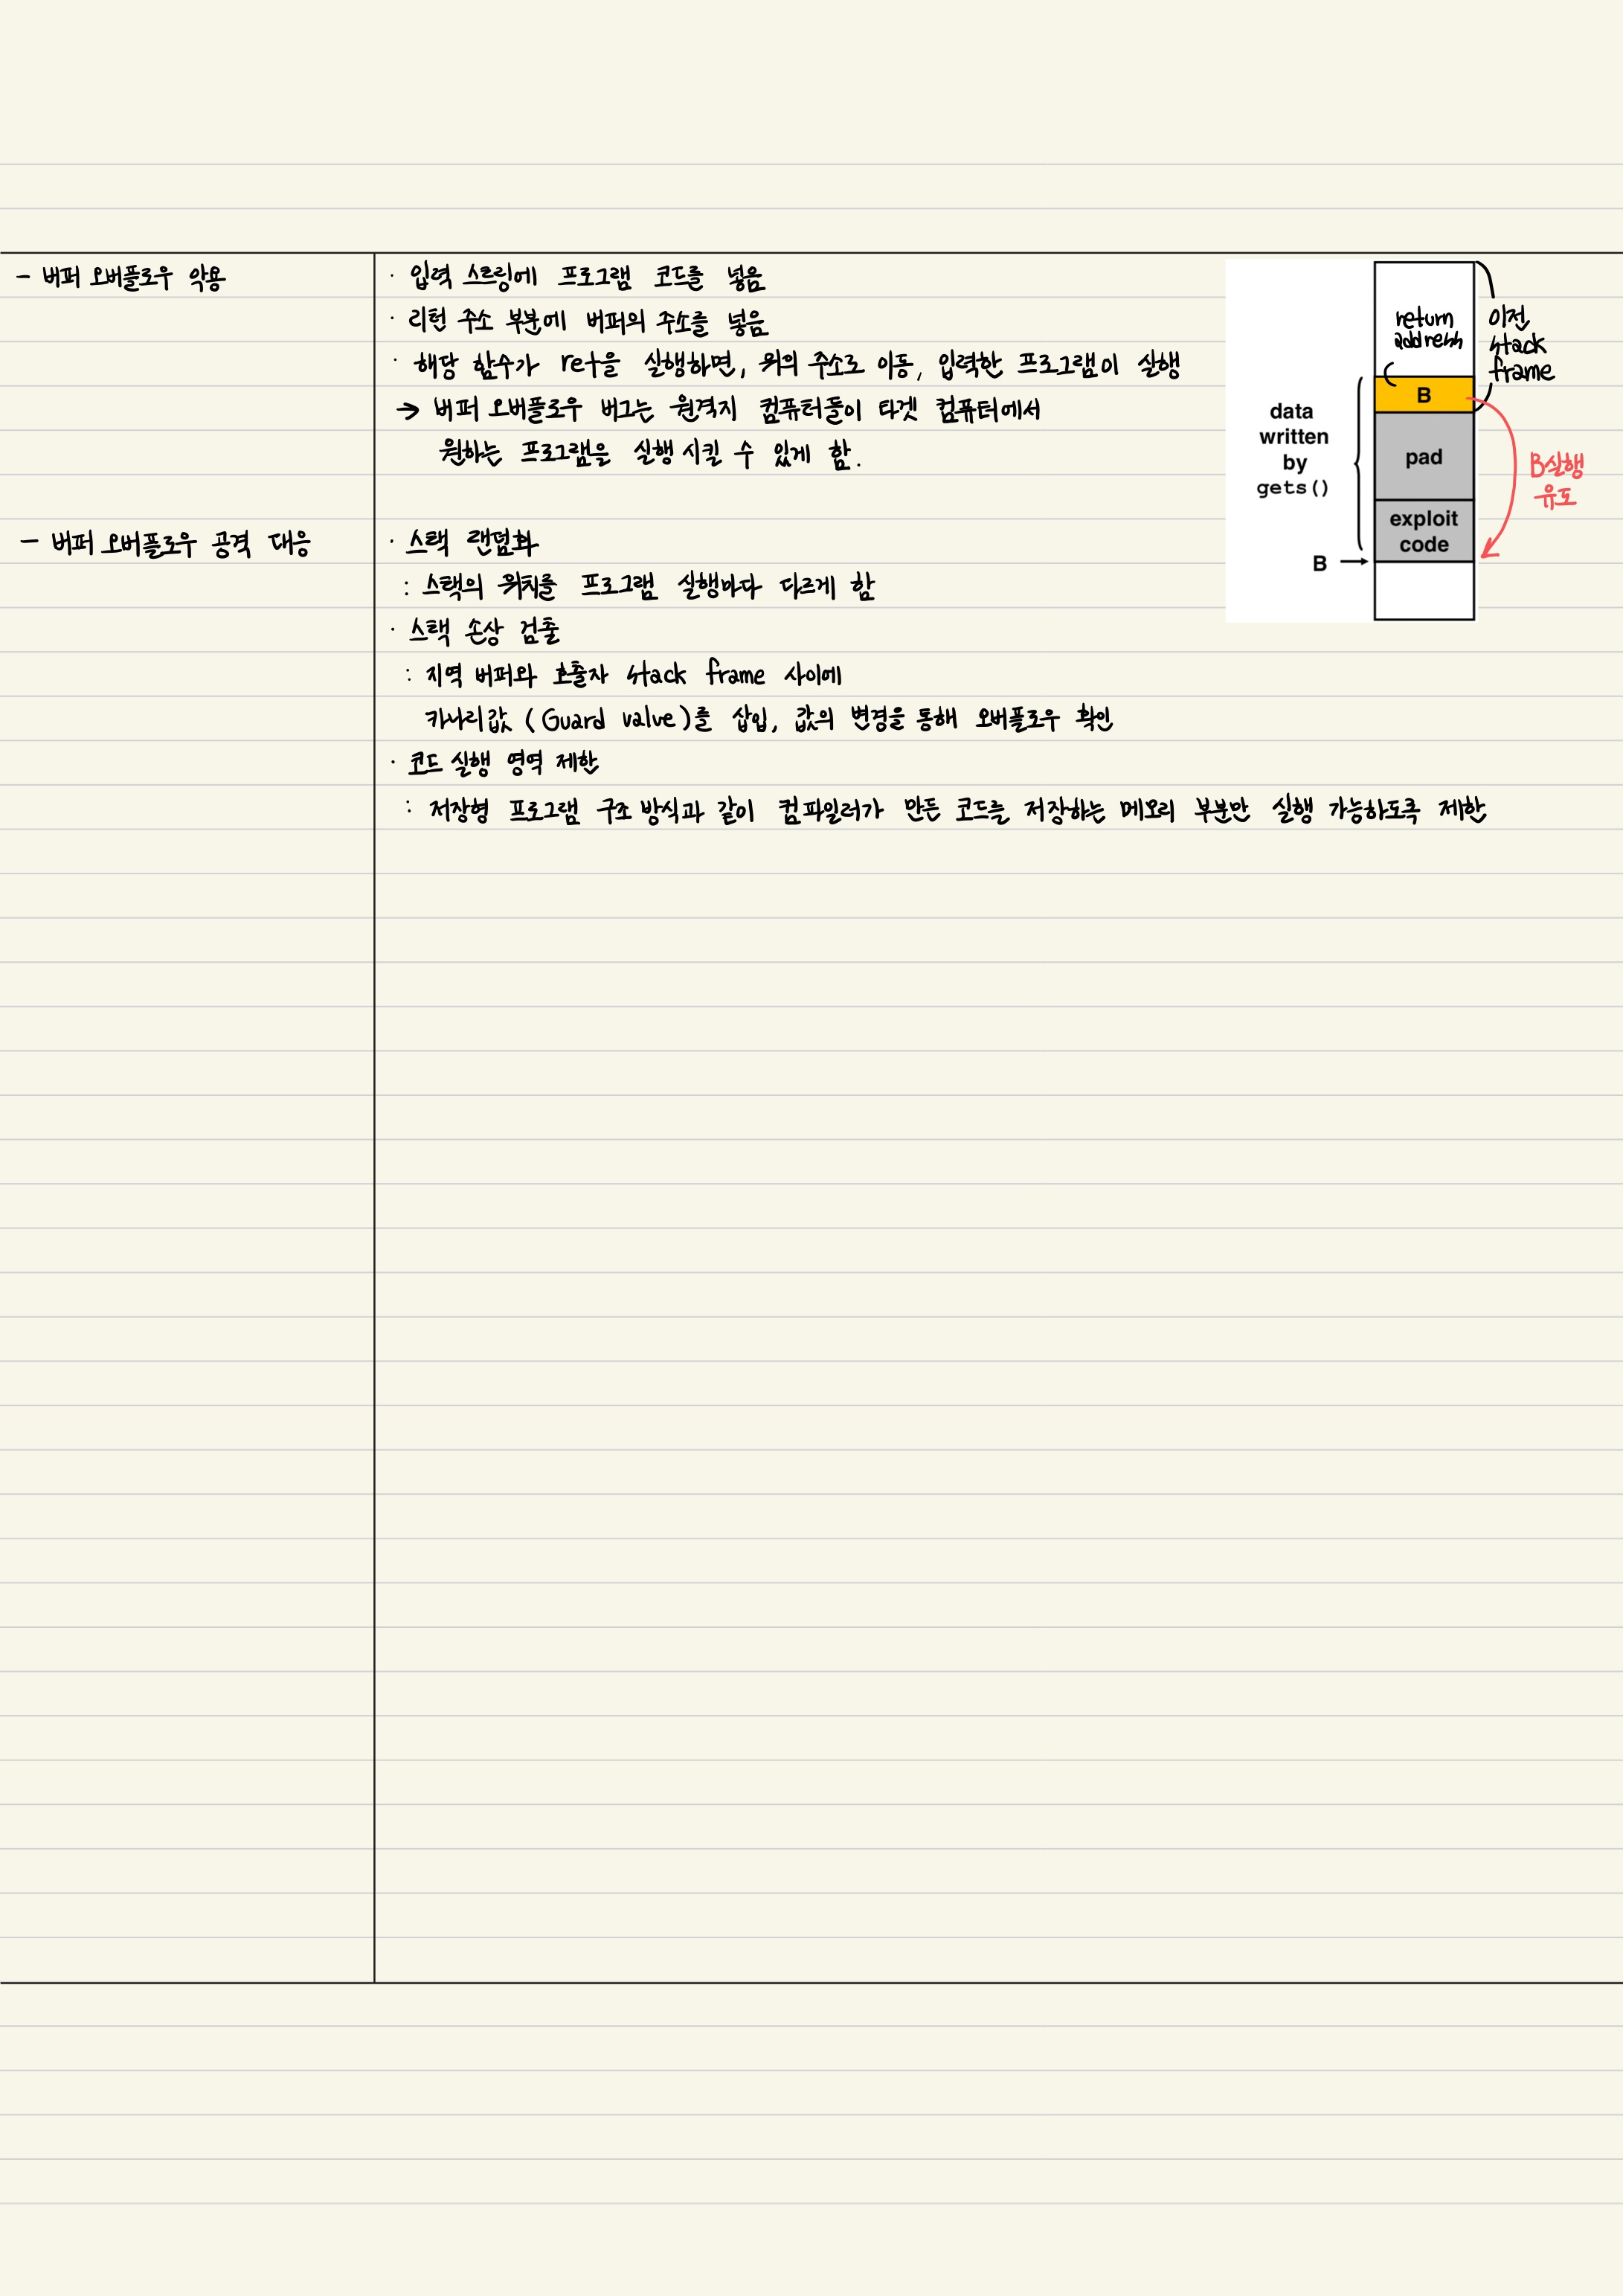 - 버퍼 오버플로우 악용
· 입력 스트링에 프로그램 코드를 넣음
· 리턴 주소 부분에 버퍼의 주소를 넣음
· 해당 함수가 ret을 실행하면, 위의 주소로 이동, 입력한 프로그램이 실행
→ 버퍼 오버플로우 버그는 원격지 컴퓨터들이 타겟 컴퓨터에서
원하는 프로그램을 실행 시킬 수 있게 함.
return
address
이전
stack
frame
B
data
written
by
gets()
pad
exploit
code
B →
B실행
유도
- 버퍼 오버플로우 공격 대응
· 스택 랜덤화
: 스택의 위치를 프로그램 실행마다 다르게 함
· 스택 손상 검출
: 지역 버퍼와 호출자 stack frame 사이에
카나리값 (Guard valve)를 삽입, 값의 변경을 통해 오버플로우 확인
· 코드 실행 영역 제한
: 저장형 프로그램 구조 방식과 같이 컴파일러가 만든 코드를 저장하는 메모리 부분만 실행 가능하도록 제한